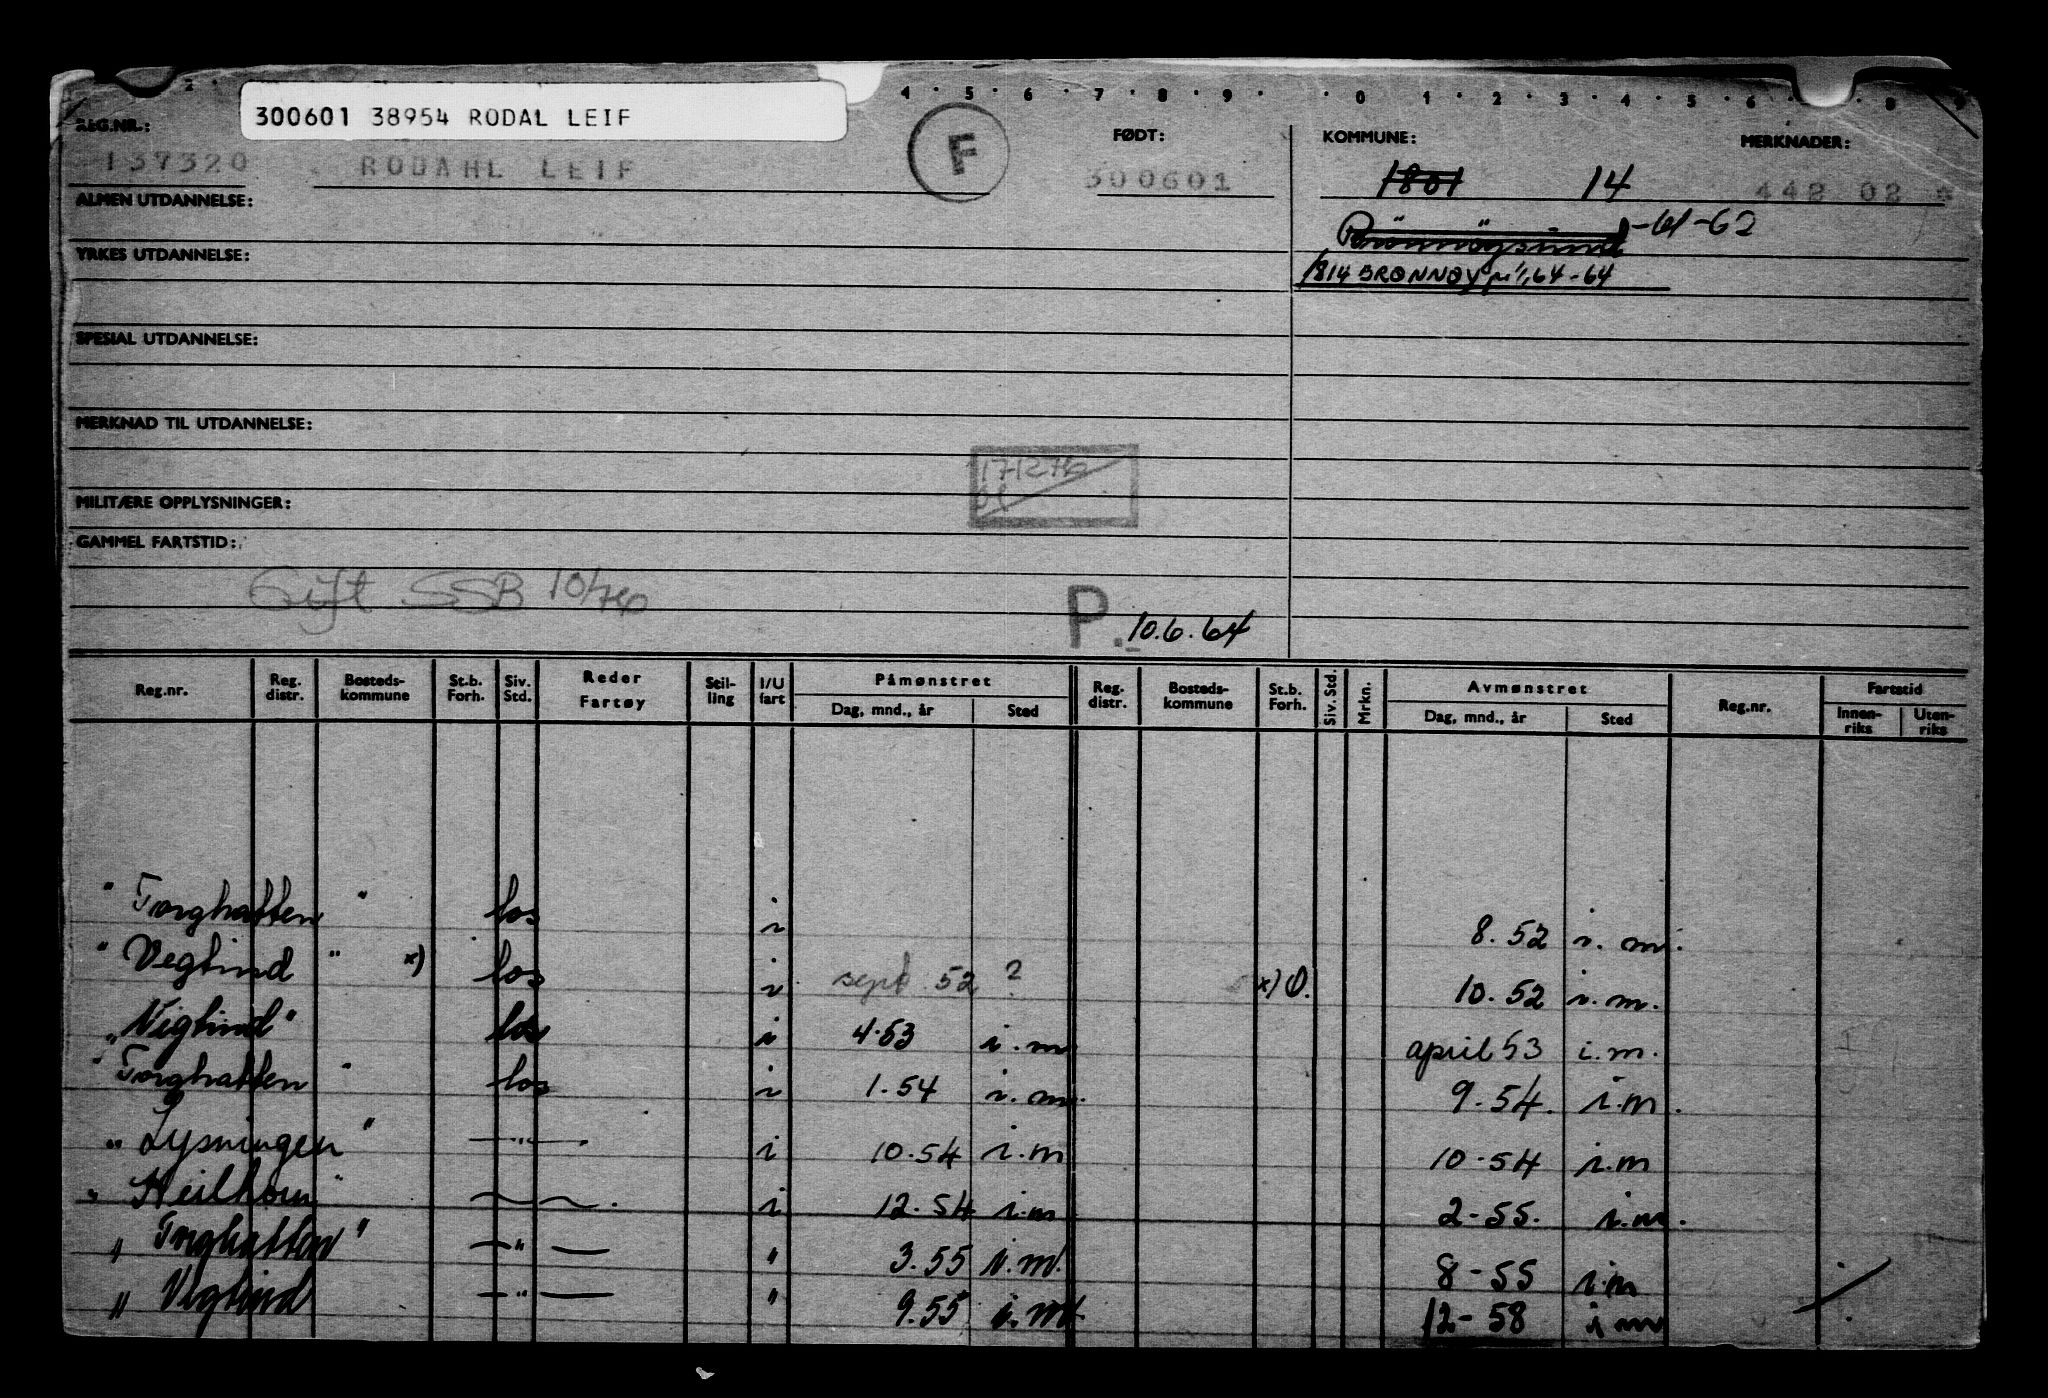 300601 38954 RODAL LEIF
2 4 · 5 · 6 · 7 · 8 · 9 · · 0 1 · 2 · 3 · 4 · 5 · 6 · 8 9
REG.NR.: FØDT: KOMMUNE: MERKNADER:
137320 RODAHL LEIF F 300601 1801 14 442 02 *
ALMEN UTDANNELSE:
Brönnöysund -61-62
YRKES UTDANNELSE:
1814 BRØNNØY pr 1/1,64-64
SPESIAL UTDANNELSE:
MERKNAD TIL UTDANNELSE:
171276
MILITÆRE OPPLYSNINGER:
GAMMEL FARTSTID:
Gift SSB 10/76
P. 10.6.64
Reg.nr. Reg. distr. Bosteds-kommune St.b. Forh. Siv. Std. Reder Fartøy Stil-ling I/U fart Påmønstret Dag, mnd., år Sted Reg. distr. Bosteds-kommune St.b. Forh. Siv. Std. Mrkn. Avmønstret Dag, mnd., år Sted Reg.nr. Fartstid Innen-riks Uten-riks
" Torghatten " los i 8. 52 i. m.
" Vegtind " x) los i sept 52 ? x) O. 10. 52 i. m.
" Vegtind " los i 4.53 i. m. april 53 i. m.
" Torghatten " los i 1.54 i. m. 9.54. i. m.
" Lysningen " — " — i 10.54 i. m 10-54 i. m
" Heilhorn " — i 12.54 i. m 2-55. i. m.
" Torghatten " — " — " 3.55 i. m. 8-55 i m
" Vegtind — " — " 9.55 i. m. 12-58 i m